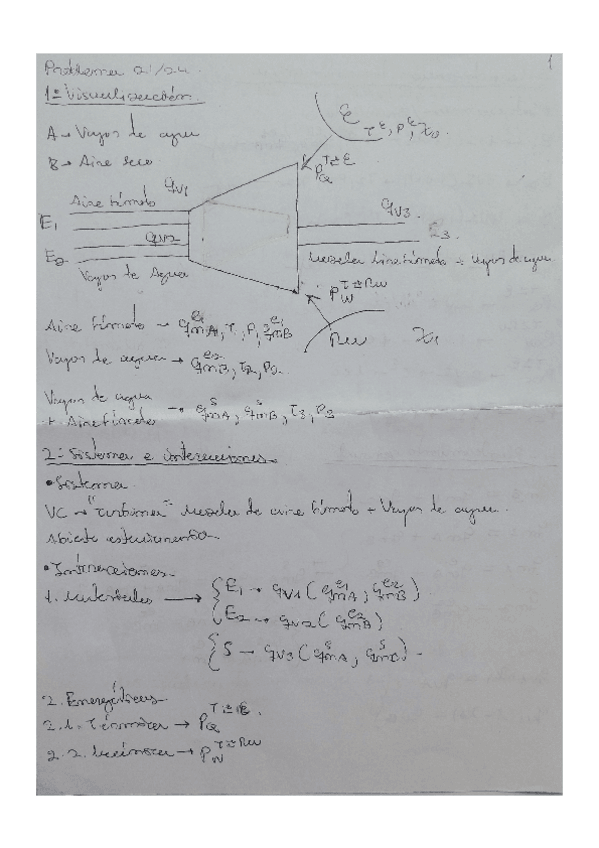 1
Problema 21/24.
1ª Visualización.
A → Vapor de agua
B → Aire seco
ε
T^ε, P^ε, χ0.
P_Q^{T⇄ε}
Aire húmedo q_{V1}
E1
q_{V2}
E2
Vapor de Agua
q_{V3}.
E3.
Mezcla Aire húmedo + vapor de agua
P_W^{T⇄RW}
RW
Aire húmedo → q_{mA}^{e1}, T, P, q_{mB}^{e1}
Vapor de agua → q_{mB}^{e2}, T2, P2.
Vapor de agua
+ Aire húmedo → q_{mA}^{s}, q_{mB}^{s}, T3, P3
2- Sistema e interacciones.
• Sistema
VC → "Turbina" Mezcla de aire húmedo + Vapor de agua.
Abierto estacionario.
• Interacciones.
1. Materiales → { E1 → q_{V1} (q_{mA}^{e1}, q_{mB}^{e2})
E2 → q_{V2} (q_{mB}^{e2})
{ S → q_{V3} (q_{mA}^{s}, q_{mB}^{s}).
2. Energéticas
2.1. Térmica → P_Q^{T⇄ε}.
2.2. Mecánica → P_W^{T⇄RW}